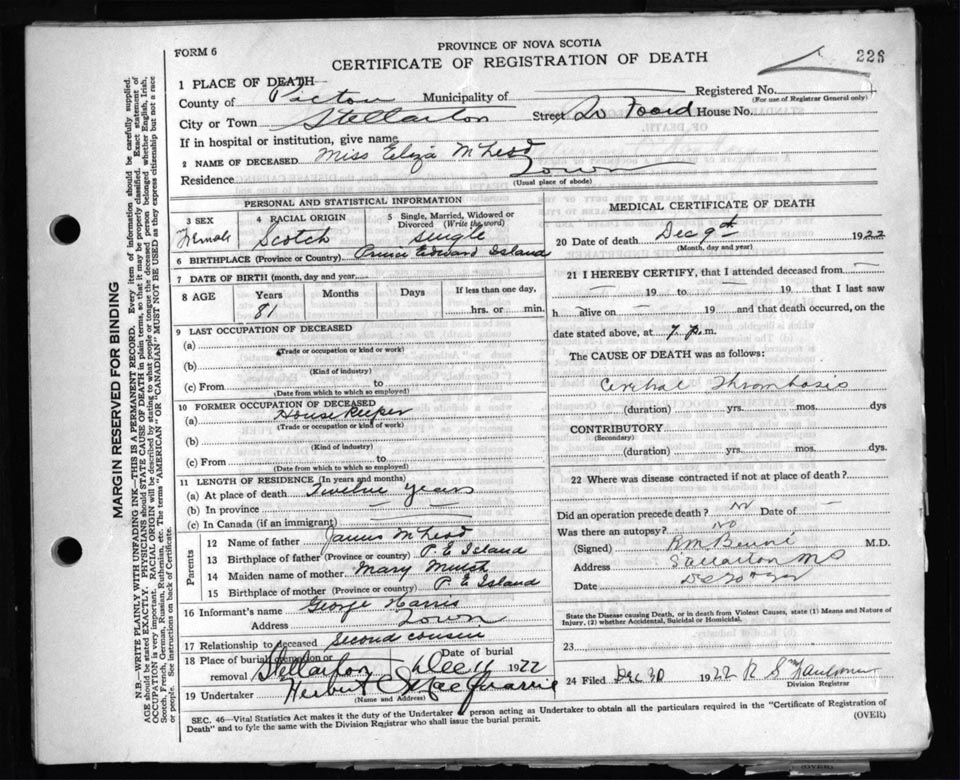 PROVINCE OF NOVA SCOTIA
FORM 6
CERTIFICATE OF REGISTRATION OF DEATH
226
1 PLACE OF DEATH
Registered No.
(For use of Registrar General only)
County of Pictou Municipality of
City or Town Stellarton Street So Foord House No.
If in hospital or institution, give name
2 NAME OF DECEASED Miss Eliza McLeod
Residence Town
(Usual place of abode)
PERSONAL AND STATISTICAL INFORMATION
3 SEX Female
4 RACIAL ORIGIN Scotch
5 Single, Married, Widowed or Divorced (Write the word) single
6 BIRTHPLACE (Province or Country) Prince Edward Island
7 DATE OF BIRTH (month, day and year
8 AGE Years 81 Months Days If less than one day, hrs. or min.
9 LAST OCCUPATION OF DECEASED
(a)
(Trade or occupation or kind or work)
(b)
(Kind of industry)
(c) From to
(Date from which to which so employed)
10 FORMER OCCUPATION OF DECEASED
(a) House Keeper
(Trade or occupation or kind of work)
(b)
(Kind of industry)
(c) From to
(Date from which to which so employed)
11 LENGTH OF RESIDENCE (In years and months)
(a) At place of death Twelve years
(b) In province
(c) In Canada (if an immigrant)
Parents
12 Name of father James McLeod
13 Birthplace of father (Province or country) P. E Island
14 Maiden name of mother Mary Mutch
15 Birthplace of mother (Province or country) P. E Island
16 Informant's name George Harris
Address Town
17 Relationship to deceased Second cousin
18 Place of burial, cremation or removal Stellarton Date of burial Dec 11 1922
19 Undertaker Herbert MacQuarrie
(Name and Address)
MEDICAL CERTIFICATE OF DEATH
20 Date of death Dec 9th 1922
(Month, day and year)
21 I HEREBY CERTIFY, that I attended deceased from —
— 19 to — 19 that I last saw
h alive on — 19 and that death occurred, on the
date stated above, at 7 p.m.
The CAUSE OF DEATH was as follows:
Cerebral Thrombosis
(duration) yrs. mos. dys
CONTRIBUTORY
(Secondary)
(duration) yrs. mos. dys.
22 Where was disease contracted if not at place of death?
Did an operation precede death? No Date of —
Was there an autopsy? No
(Signed) M.D.
Address Stellarton
Date
State the Disease causing Death, or in death from Violent Causes, state (1) Means and Nature of
Injury, (2) whether Accidental, Suicidal or Homicidal.
23
24 Filed Dec 30 1922
Division Registrar
SEC. 46—Vital Statistics Act makes it the duty of the Undertaker or person acting as Undertaker to obtain all the particulars required in the "Certificate of Registration of
Death" and to fyle the same with the Division Registrar who shall issue the burial permit.
(OVER)
MARGIN RESERVED FOR BINDING
N.B.—WRITE PLAINLY WITH UNFADING INK—THIS IS A PERMANENT RECORD. Every item of information should be carefully supplied.
AGE should be stated EXACTLY. PHYSICIANS should STATE CAUSE OF DEATH in plain terms, so that it may be properly classified. Exact statement of
OCCUPATION is very important. RACIAL ORIGIN will be described by stating to what people or tongue the deceased person belonged whether English, Irish,
Scotch, French, German, Russian, Ruthenian, etc. The terms "AMERICAN" or "CANADIAN" MUST NOT BE USED as they express citizenship but not a race
or people. See instructions on back of Certificate.